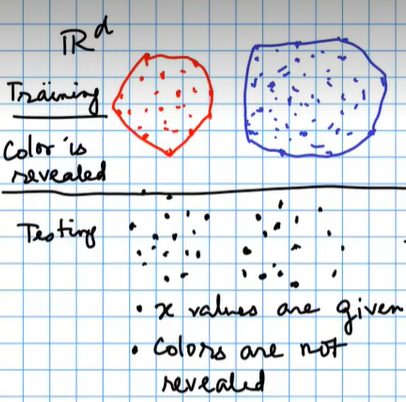 ℝᵈ
Training
Color is
revealed
Testing
• x values are given
• Colors are not
revealed